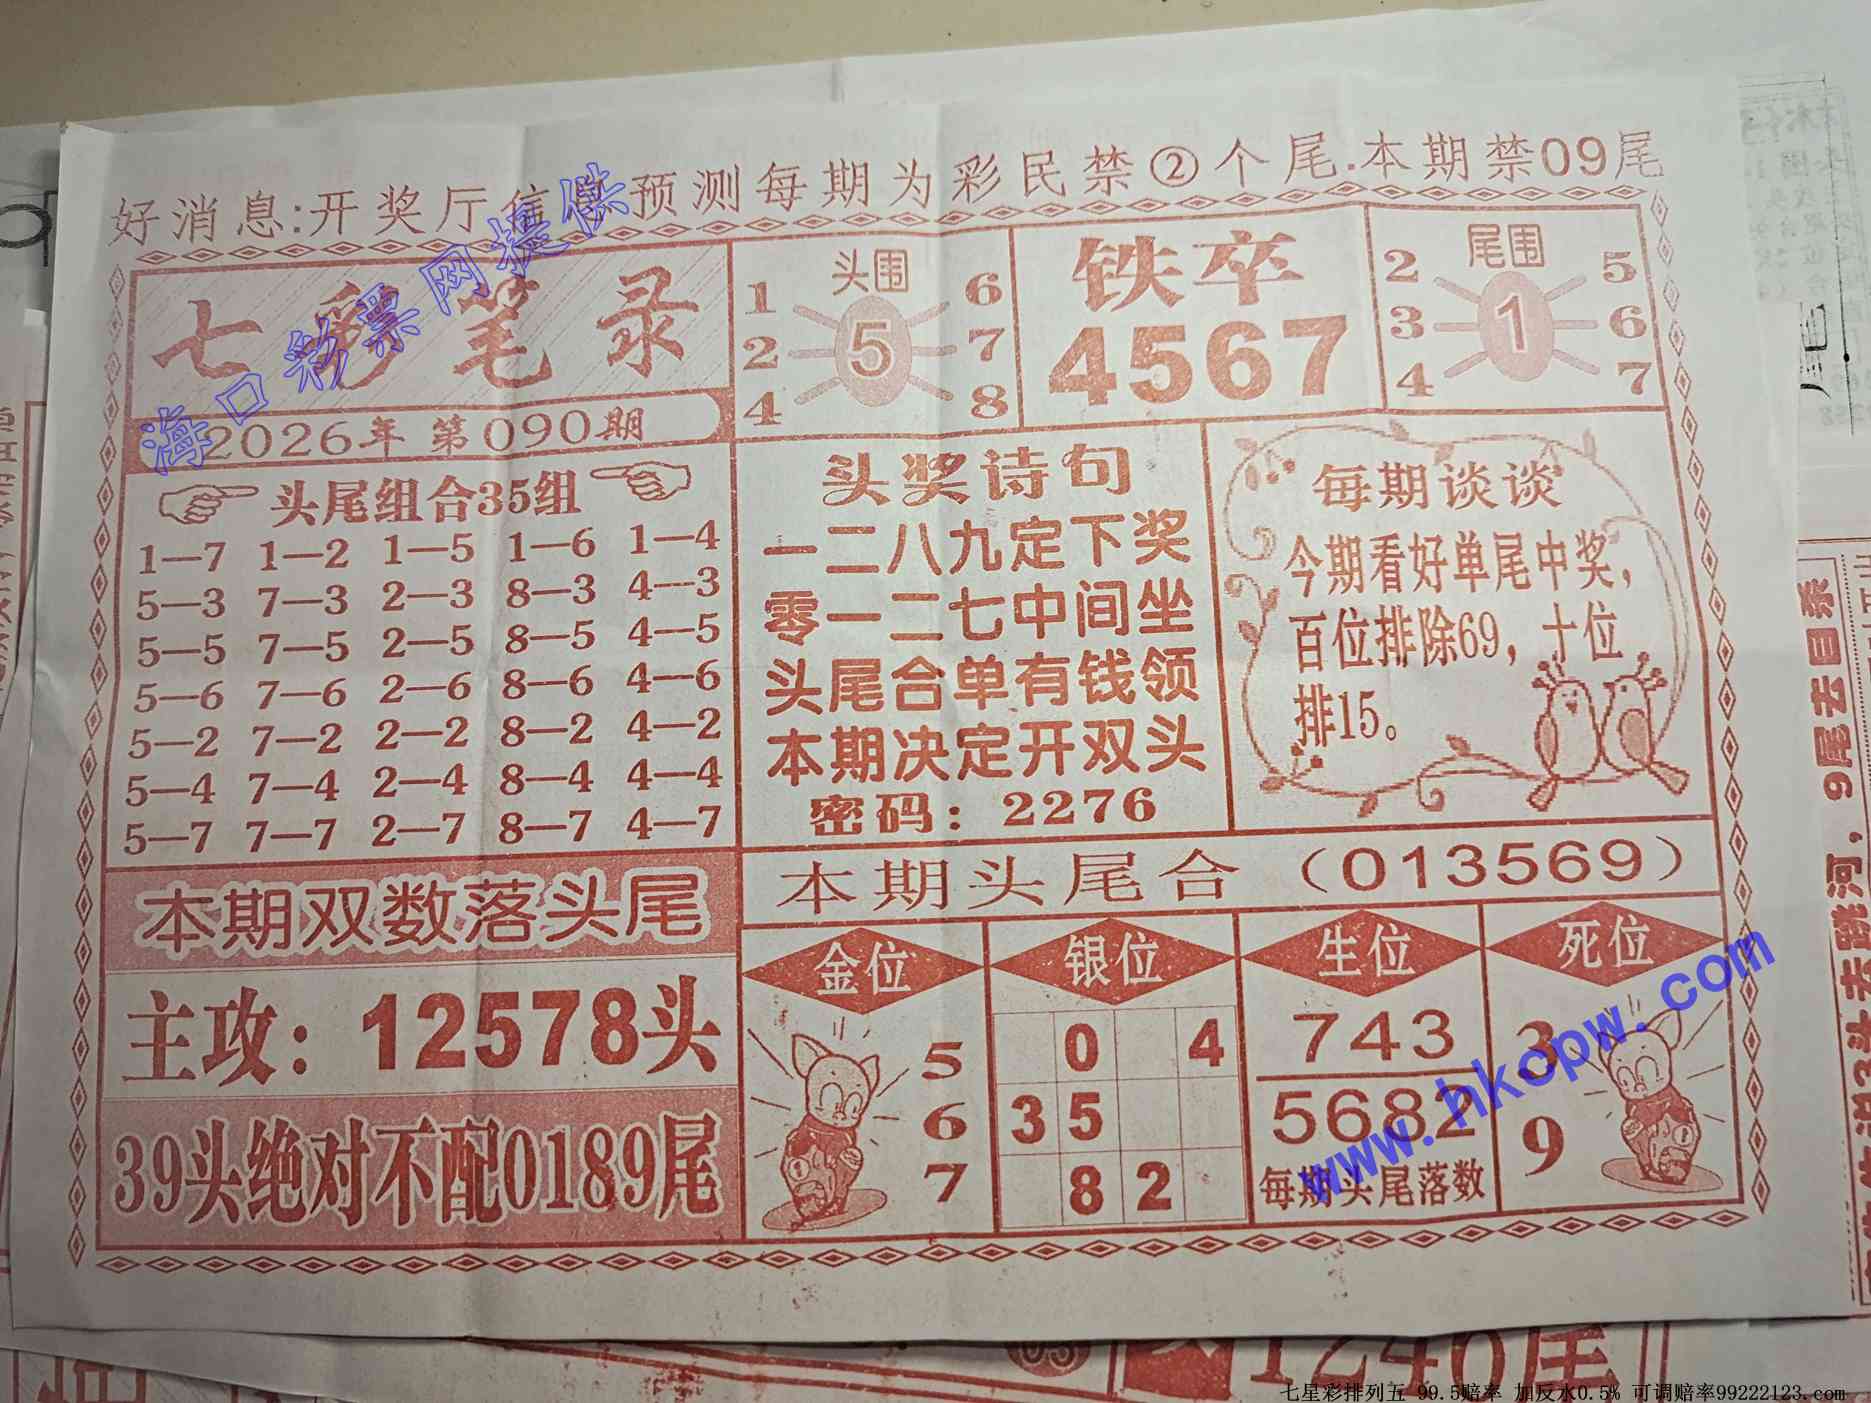 好消息:开奖厅信息预测每期为彩民禁②个尾.本期禁09尾
七彩笔录
2026年 第090期
头围
1 6
2 5 7
4 8
铁卒
4567
尾围
2 5
3 1 6
4 7
头尾组合35组
1—7 1—2 1—5 1—6 1—4
5—3 7—3 2—3 8—3 4—3
5—5 7—5 2—5 8—5 4—5
5—6 7—6 2—6 8—6 4—6
5—2 7—2 2—2 8—2 4—2
5—4 7—4 2—4 8—4 4—4
5—7 7—7 2—7 8—7 4—7
头奖诗句
一二八九定下奖
零一二七中间坐
头尾合单有钱领
本期决定开双头
密码：2276
每期谈谈
今期看好单尾中奖，
百位排除69，十位
排15。
本期头尾合（013569）
本期双数落头尾
主攻：12578头
39头绝对不配0189尾
金位
5
6
7
银位
0 4
3 5
8 2
生位
743
5682
每期头尾落数
死位
3
9
海口彩票网提供
www.hkopw.com
9尾去自杀
1246尾
七星彩排列五 99.5赔率 加反水0.5% 可调赔率99222123.com